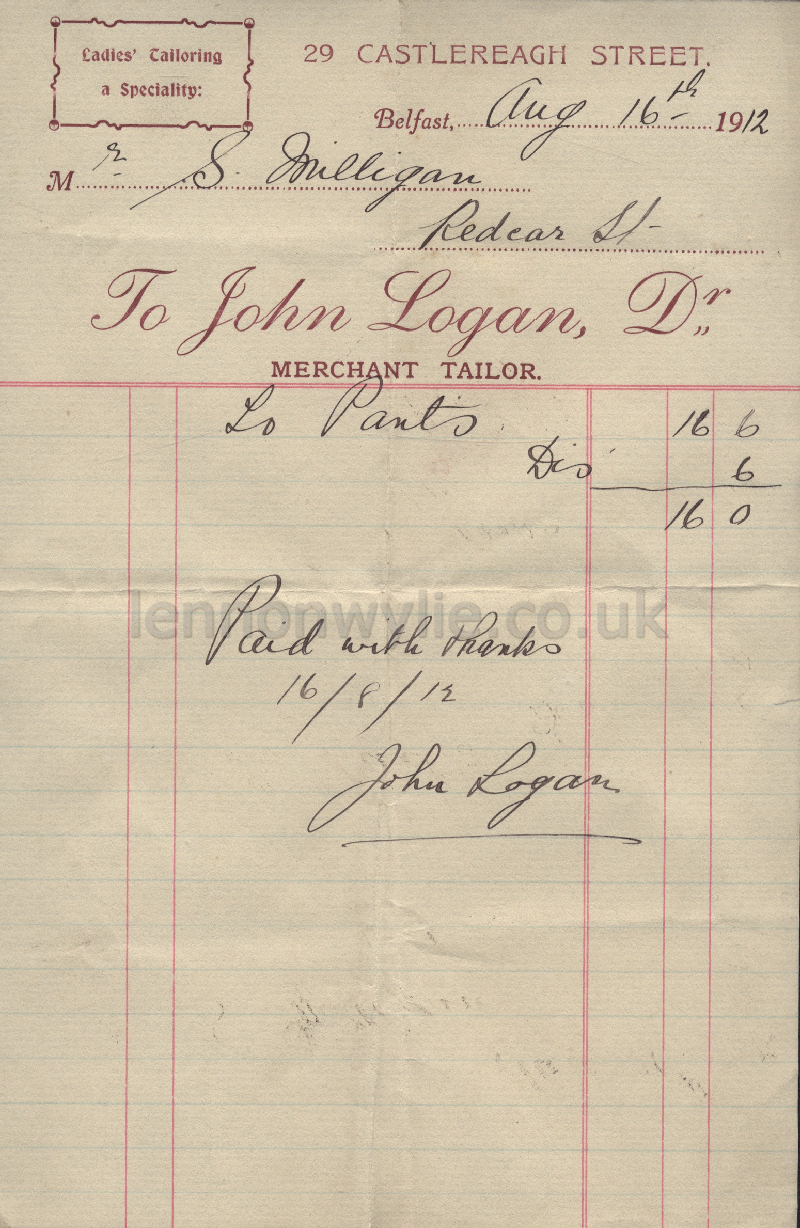 Ladies' Tailoring
a Speciality:
29 CASTLEREAGH STREET.
Belfast, Aug 16th 1912
Mr S. Milligan
Redcar St
To John Logan, Dr.
MERCHANT TAILOR.
To Pants 16 6
Dis 6
16 0
lennonwylie.co.uk
Paid with thanks
16/8/12
John Logan